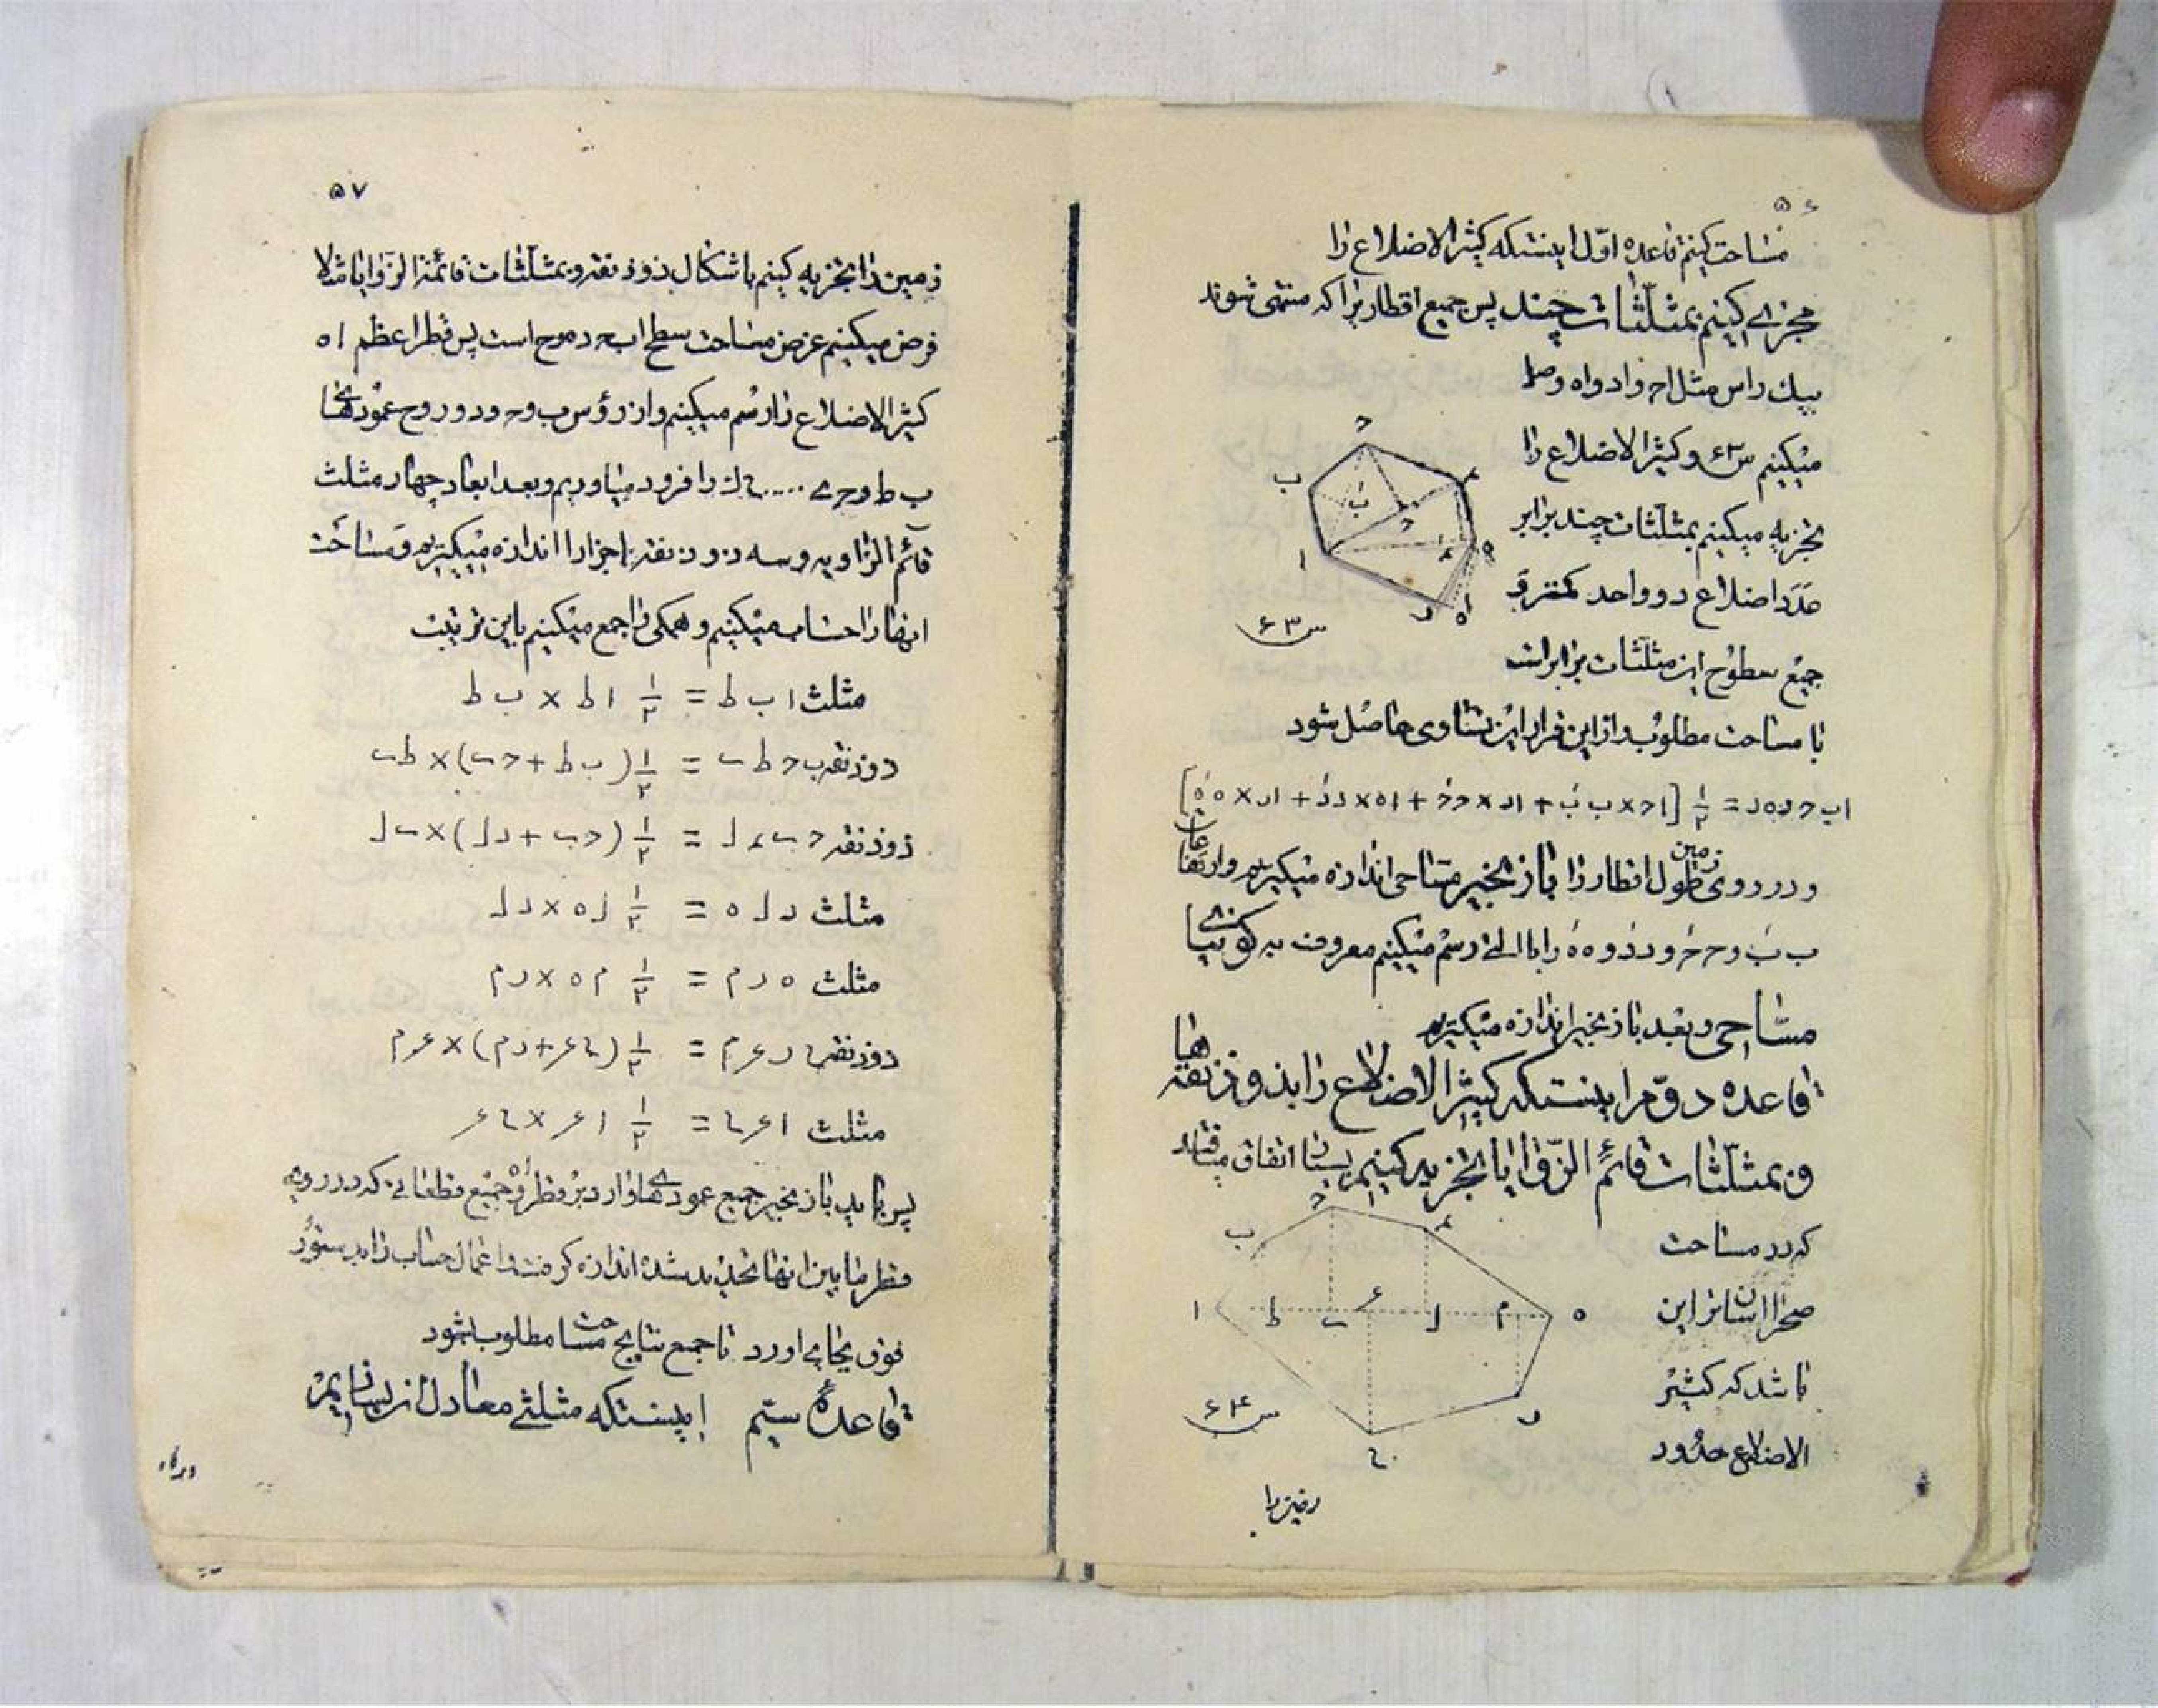 ۵۶
مساحت کنیم قاعده اوّل اینستکه کثیرالاضلاع را
مجزی کنیم بمثلّثات چند پس جمیع اقطاریرا که منتهی شوند
بیك راس مثل اح و اد و اه وصل
میکنیم س۶۳ و کثیرالاضلاع را
تجزیه میکنیم بمثلّثات چند برابر
عدد اضلاع دو واحد کمتر و
جمیع سطوح این مثلّثات برابراست
با مساحت مطلوب و از این قرار این تساوی حاصل شود
و در روی زمین طول اقطار را با زنجیر مسّاحی اندازه میگیریم و ارتفاعات
را با التی رسم میکنیم معروف به کونیای
مسّاحی و بعد با زنجیر اندازه میگیریم
قاعده دوّم اینستکه کثیرالاضلاع را بذوذنقه‌ها
و بمثلّثات قائم الزّوایا تجزیه کنیم بسیار اتفاق میافتد
که در مساحت
صحرا اسانتر این
باشد که کثیر
الاضلاع حدود
س۶۳
س۶۴
زمین را
۵۷
زمین را تجزیه کنیم باشکال ذوذنقه و بمثلّثات قائمة الزّوایا مثلا
فرض میکنیم غرض مساحت سطح اب‍ح‍ د ه‍ ر ح است پس قطر اعظم اه
کثیرالاضلاع را رسم میکنیم و از رؤس ب و ح و د و ر و ح عمودهای
ب ط و ح ی ..... را فرود میاوریم و بعد ابعاد چهار مثلث
قائم الزاویه و سه ذوذنقه اجزا را اندازه میگیریم و مساحت
انها را حساب میکنیم و همکی را جمع میکنیم باین ترتیب
مثلث ا ب ط = ۱/۲ ا ط × ب ط
ذوذنقه ب ح ط ی = ۱/۲ (ب ط + ح ی) × ط ی
ذوذنقه ح ی د ل = ۱/۲ (ح ی + د ل) × ی ل
مثلث د ل ه = ۱/۲ ل ه × د ل
مثلث ه ر م = ۱/۲ م ه × ر م
ذوذنقه ح ر ع م = ۱/۲ (ح ع + ر م) × ع م
مثلث ا ع ح = ۱/۲ ا ع × ح ع
پس باید با زنجیر جمیع عمودهای وارد بر قطر اه و جمیع قطعاتی که در روی
قطر مابین انها تحدید شده اندازه گرفت و اعمال حساب را بدستور
فوق بجای اورد تا جمع نتایج مساحت مطلوب شود
قاعدهٔ سیّم اینستکه مثلثی معادل ان بسازیم